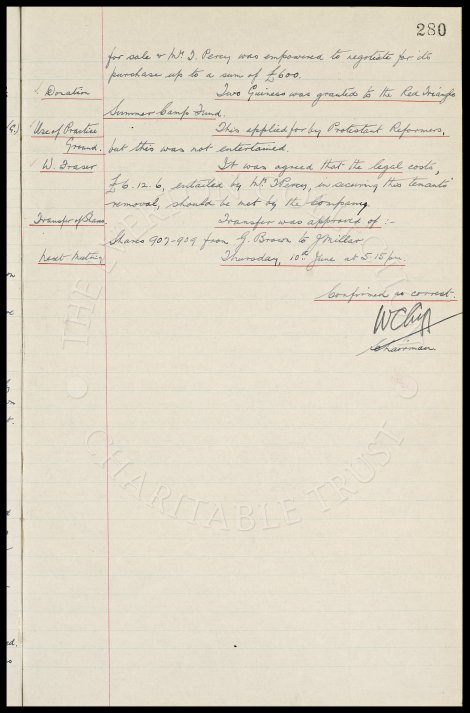 280
for sale & Mr. I. Percy was empowered to negotiate for its
purchase up to a sum of £600.
Donation Two Guineas was granted to the Red Triangle
Summer Camp Fund.
Use of Practice Ground. This applied for by Protestant Reformers,
but this was not entertained.
W. Fraser It was agreed that the legal costs,
£6.12.6, entailed by Mr. I Percy, in securing this tenants'
removal, should be met by the company.
Transfer of Shares Transfer was approved of :-
Shares 907-909 from G. Brown to J Millar
Next Meeting Thursday, 10th June at 5.15 pm.
Confirmed as correct.
Chairman.
THE
CHARITABLE TRUST